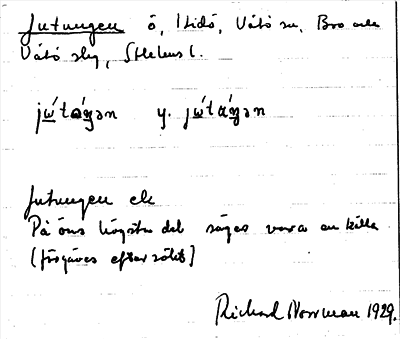 Jutungen ö, Itidö, Vätö sn, Bro och
Vätö skg, Sthlms l.
jω´ta´ŋən y. jω´tá´ŋən
Jutungen ek
På öns högsta del säges vara en källa
(förgäves eftersökt)
Richard Norrman 1929.